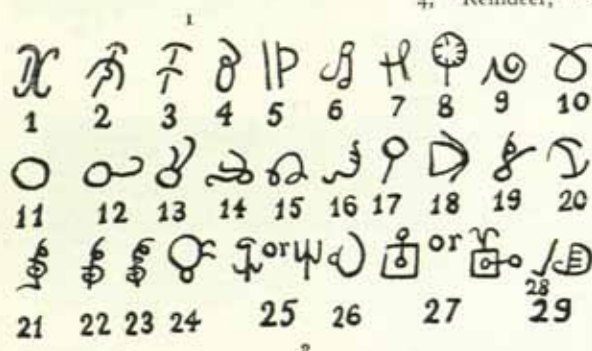 4, Reindeer,
1
1 2 3 4 5 6 7 8 9 10
11 12 13 14 15 16 17 18 19 20
or or
21 22 23 24 25 26 27 28 29
2